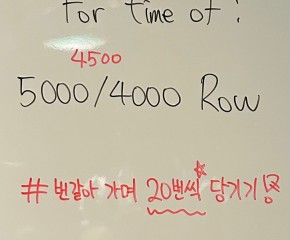 For time of :
4500
5000/4000 Row
#번갈아 가며 20번씩 당기기